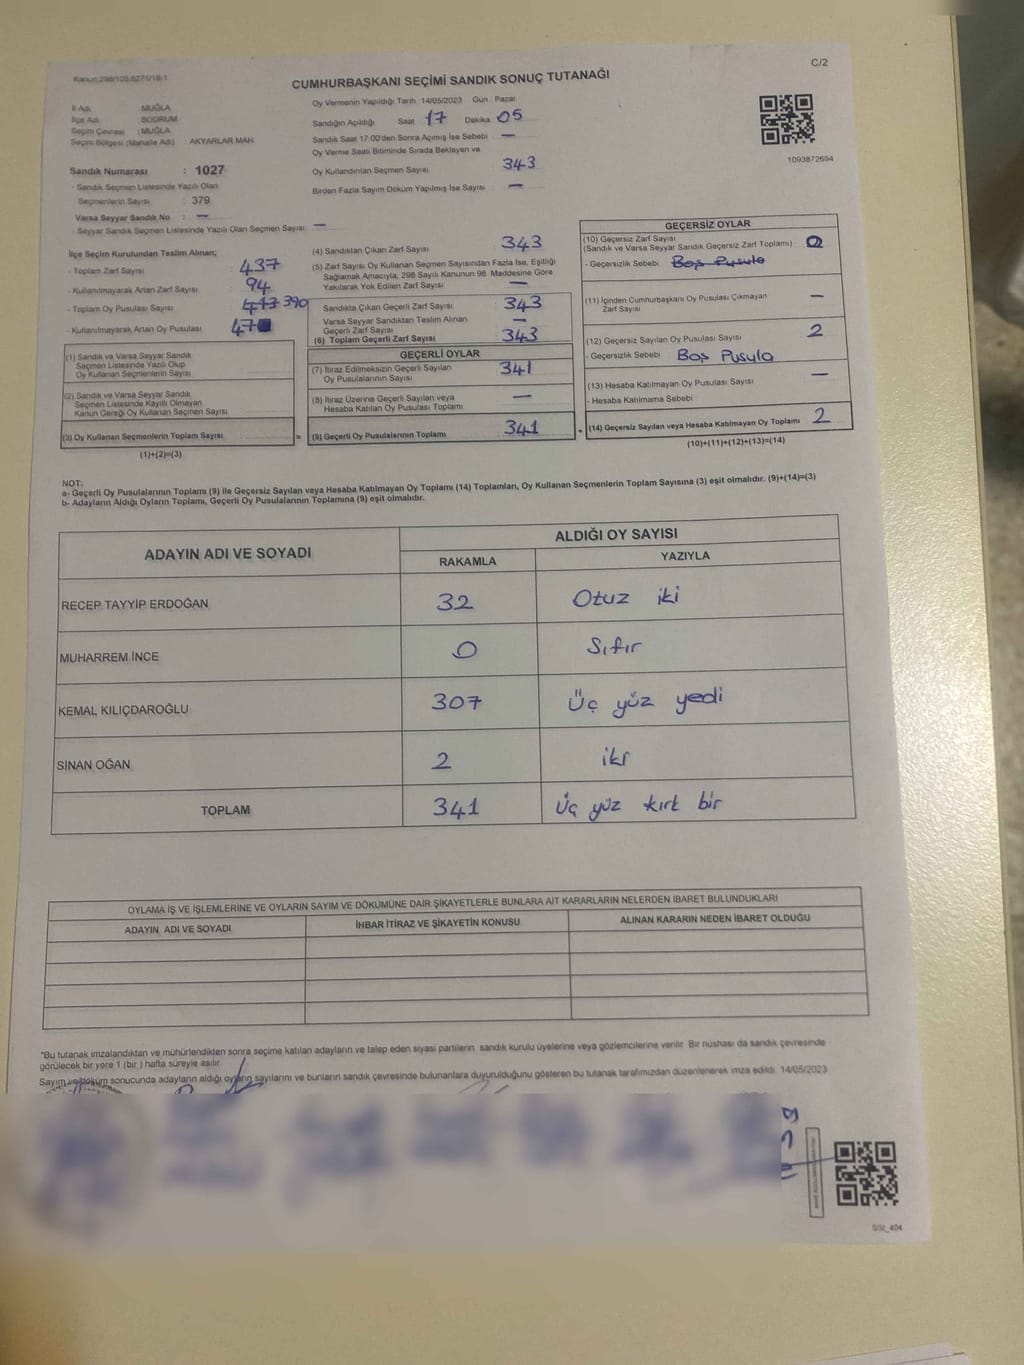 Kanun:298/105,6271/18-1
C/2
CUMHURBAŞKANI SEÇİMİ SANDIK SONUÇ TUTANAĞI
İl Adı : MUĞLA
İlçe Adı : BODRUM
Seçim Çevresi : MUĞLA
Seçim Bölgesi (Mahalle Adı) : AKYARLAR MAH.
Sandık Numarası : 1027
- Sandık Seçmen Listesinde Yazılı Olan
Seçmenlerin Sayısı : 379
Varsa Seyyar Sandık No : —
- Seyyar Sandık Seçmen Listesinde Yazılı Olan Seçmen Sayısı : —
Oy Vermenin Yapıldığı Tarih : 14/05/2023 Gün : Pazar
Sandığın Açıldığı Saat 17 Dakika 05
Sandık Saat 17:00'den Sonra Açılmış İse Sebebi : —
Oy Verme Saati Bitiminde Sırada Bekleyen ve
Oy Kullandırılan Seçmen Sayısı 343
Birden Fazla Sayım Döküm Yapılmış İse Sayısı —
1093872694
İlçe Seçim Kurulundan Teslim Alınan;
- Toplam Zarf Sayısı : 437
- Kullanılmayarak Artan Zarf Sayısı : 94
- Toplam Oy Pusulası Sayısı : 390
- Kullanılmayarak Artan Oy Pusulası : 47
(1) Sandık ve Varsa Seyyar Sandık
Seçmen Listesinde Yazılı Olup
Oy Kullanan Seçmenlerin Sayısı
(2) Sandık ve Varsa Seyyar Sandık
Seçmen Listesinde Kayıtlı Olmayan
Kanun Gereği Oy Kullanan Seçmen Sayısı
(3) Oy Kullanan Seçmenlerin Toplam Sayısı
(1)+(2)=(3)
=
(4) Sandıktan Çıkan Zarf Sayısı 343
(5) Zarf Sayısı Oy Kullanan Seçmen Sayısından Fazla İse, Eşitliği
Sağlamak Amacıyla, 298 Sayılı Kanunun 98. Maddesine Göre
Yakılarak Yok Edilen Zarf Sayısı —
Sandıkta Çıkan Geçerli Zarf Sayısı 343
Varsa Seyyar Sandıktan Teslim Alınan
Geçerli Zarf Sayısı —
(6) Toplam Geçerli Zarf Sayısı 343
GEÇERLİ OYLAR
(7) İtiraz Edilmeksizin Geçerli Sayılan
Oy Pusulalarının Sayısı 341
(8) İtiraz Üzerine Geçerli Sayılan veya
Hesaba Katılan Oy Pusulası Toplamı —
(9) Geçerli Oy Pusulalarının Toplamı 341
+
GEÇERSİZ OYLAR
(10) Geçersiz Zarf Sayısı
(Sandık ve Varsa Seyyar Sandık Geçersiz Zarf Toplamı) 0
- Geçersizlik Sebebi : Boş Pusula
(11) İçinden Cumhurbaşkanı Oy Pusulası Çıkmayan
Zarf Sayısı —
(12) Geçersiz Sayılan Oy Pusulası Sayısı 2
- Geçersizlik Sebebi Boş Pusula
(13) Hesaba Katılmayan Oy Pusulası Sayısı —
- Hesaba Katılmama Sebebi
(14) Geçersiz Sayılan veya Hesaba Katılmayan Oy Toplamı 2
(10)+(11)+(12)+(13)=(14)
NOT:
a- Geçerli Oy Pusulalarının Toplamı (9) ile Geçersiz Sayılan veya Hesaba Katılmayan Oy Toplamı (14) Toplamları, Oy Kullanan Seçmenlerin Toplam Sayısına (3) eşit olmalıdır. (9)+(14)=(3)
b- Adayların Aldığı Oyların Toplamı, Geçerli Oy Pusulalarının Toplamına (9) eşit olmalıdır.
ADAYIN ADI VE SOYADI
ALDIĞI OY SAYISI
RAKAMLA YAZIYLA
RECEP TAYYİP ERDOĞAN 32 Otuz iki
MUHARREM İNCE 0 Sıfır
KEMAL KILIÇDAROĞLU 307 Üç yüz yedi
SİNAN OĞAN 2 iki
TOPLAM 341 Üç yüz kırk bir
OYLAMA İŞ VE İŞLEMLERİNE VE OYLARIN SAYIM VE DÖKÜMÜNE DAİR ŞİKAYETLERLE BUNLARA AİT KARARLARIN NELERDEN İBARET BULUNDUKLARI
ADAYIN ADI VE SOYADI İHBAR İTİRAZ VE ŞİKAYETİN KONUSU ALINAN KARARIN NEDEN İBARET OLDUĞU
*Bu tutanak imzalandıktan ve mühürlendikten sonra seçime katılan adayların ve talep eden siyasi partilerin sandık kurulu üyelerine veya gözlemcilerine verilir. Bir nüshası da sandık çevresinde
görülecek bir yere 1 (bir) hafta süreyle asılır.
Sayım ve döküm sonucunda adayların aldığı oyların sayılarını ve bunların sandık çevresinde bulunanlara duyurulduğunu gösteren bu tutanak tarafımızdan düzenlenerek imza edildi. 14/05/2023
SSI_404